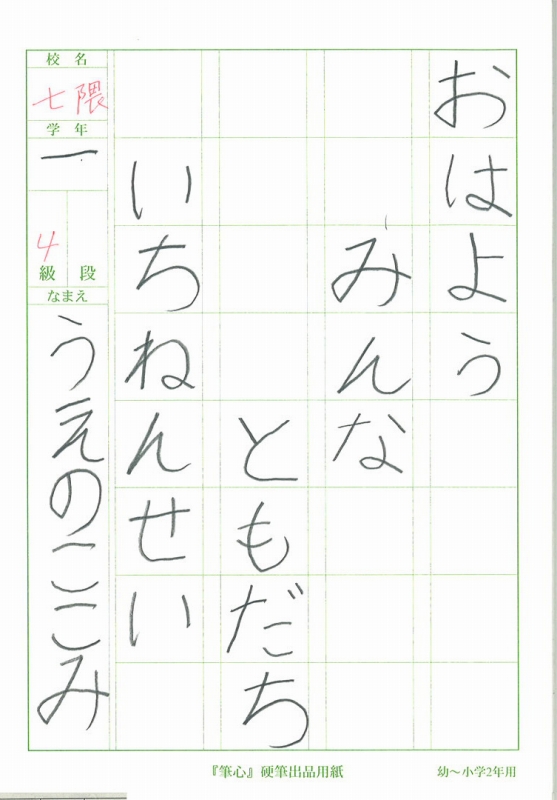 おはよう
みんな
ともだち
いちねんせい
校名
七隈
学年
一
4
級 段
なまえ
うえのここみ
『筆心』硬筆出品用紙
幼～小学2年用